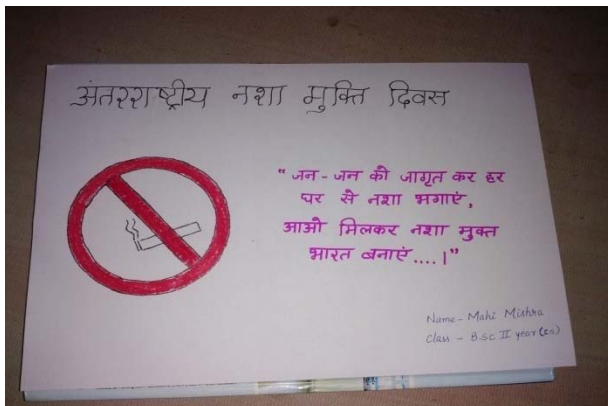 अंतरराष्ट्रीय नशा मुक्ति दिवस
"जन-जन को जागृत कर हर
घर से नशा भगाएं,
आओ मिलकर नशा मुक्त
भारत बनाएं....।"
Name- Mahi Mishra
Class - B.Sc II year (cs)